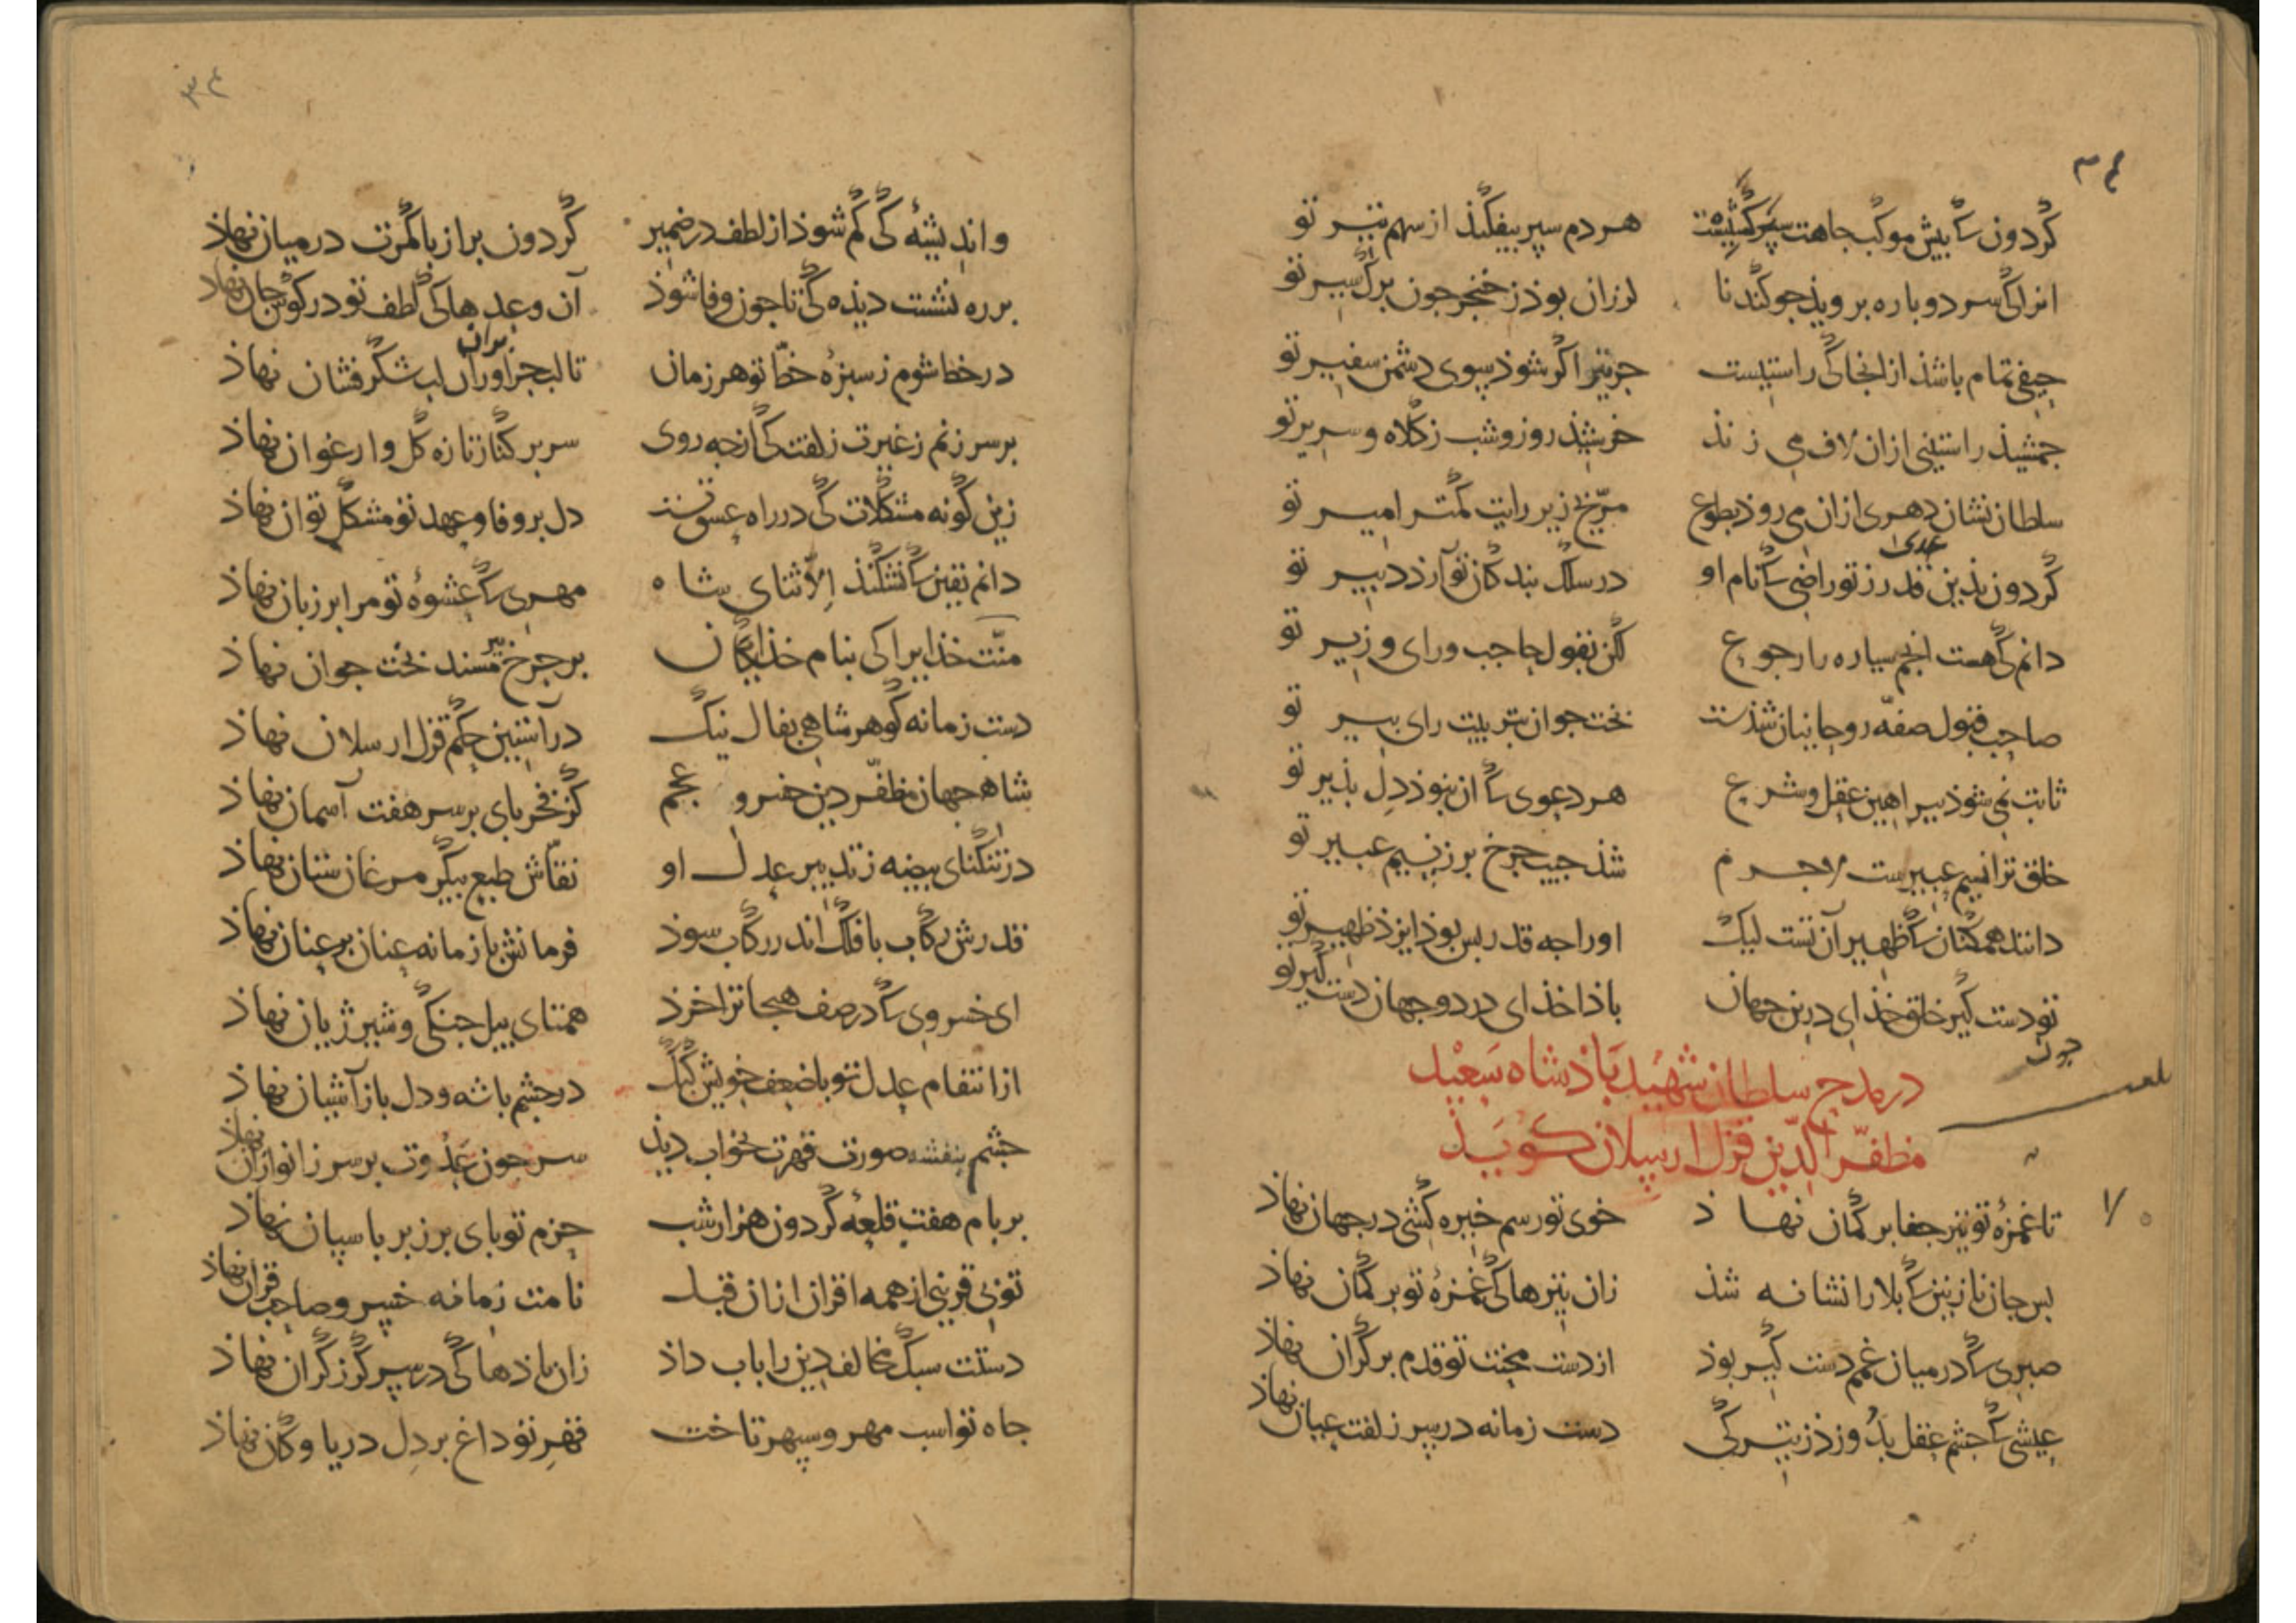 ۳۴
گردون کی پیش موکب جاهت سپرکشیست هر دم سپر بیفکند از سهم تیر تو
انرا کی سر دوباره بروید جو گندنا لرزان بوذ ز خنجر جون برک سیر تو
حیفی تمام باشذ از انجا کی راستیست جز تیر اگر شوذ بسوی دشمن سفیر تو
جمشیذ راستینی ازان لاف می زنذ خرشیذ روز و شب ز کلاه و سریر تو
سلطان نشان دهری ازان می روذ بطوع مرّیخ زیر رایت کمتر امیر تو
گردون بذین قدر ز تو راضی کی نام او در سلک بندگان تو آرذ دبیر تو
دانم کی هست انجم سیاره را رجوع لکن نقول حاجب ورای وزیر تو
صاحب قبول صفّه روحانیان شذست بخت جوان بتربیت رای پیر تو
ثابت نمی شوذ ببراهین عقل و شرع هر دعوی کی ان نبوذ دل بذیر تو
خلق ترا نسیم عبیرست لاجرم شذ جیب جرخ برز نسیم عبیر تو
دانند همکنان کی ظهیر آن تست لیک او را جه قدر بس بوذ ایزذ ظهیر تو
تو دست گیر خلق خذای درین جهان باذا خذای در دو جهان دست گیر تو
جون
در مدح سلطان شهید باذشاه سعید
مظفّر الدّین قزل ارسلان کویذ
تا غمزهٔ تو تیر جفا بر کمان نهاذ خوی تو رسم خیره کشی در جهان نهاذ
بس جان نازنین کی بلا را نشانه شذ زان تیرها کی غمزهٔ تو بر کمان نهاذ
صبری کی در میان غمم دست گیر بوذ از دست محنت تو قدم بر کران نهاذ
عیشی کی جشم عقل بذو وزذ ز تیرگی دست زمانه در سر زلفت عیان نهاذ
۳۴
و اندیشهٔ کی گم شوذ از لطف در ضمیر گردون بر از با کمرت در میان نهاذ
بر ره نشست دیذه کی تا جون وفا شوذ آن وعدها کی لطف تو در گوش جان نهاذ
در خط شوم ز سبزهٔ خطّ تو هر زمان تا لب جرا بران لب شکر فشان نهاذ
بر سر زنم ز غیرت زلفت کی از جه روی سر بر کنار تازه گل و ارغوان نهاذ
زین گونه مشکلات کی در راه عشق تست دل بر وفا و عهد تو مشکل توان نهاذ
دانم یقین کی نشکند الّا ثنای شاه مهری کی عشوهٔ تو مرا بر زبان نهاذ
منّت خذایرا کی بنام خذایگان بر جرخ پیر مسند بخت جوان نهاذ
دست زمانه گوهر شاهی بفال نیک در آستین حکم قزل ارسلان نهاذ
شاه جهان مظفّر دین خسرو عجم کز فخر بای بر سر هفت آسمان نهاذ
در تنگنای بیضه ز تدبیر عدل او نقّاش طبع بیکر مرغان ستان نهاذ
قدرش رکاب با فلک اندر رکاب سوذ فرمانش با زمانه عنان بر عنان نهاذ
ای خسروی کی در صف هیجا ترا خرذ همتای بیل جنگی و شیر ژیان نهاذ
از انتقام عدل تو با ضعف خویش کبک در جشم باشه و دل باز آشیان نهاذ
جشم بنفشه صورت قهرت بخواب دیذ سر جون عدوت بر سر زانو ازان نهاذ
بر بام هفت قلعهٔ گردون هزار شب حزم تو بای برز بر باسبان نهاذ
تو بی قرینی از همه اقران ازان قبل نامت زمانه خسرو صاحب قران نهاذ
دستت سبک مخالف دین را باب داذ زان باذها کی در سر گرز گران نهاذ
جاه تو اسب مهر و سپهر تاخت قهر تو داغ بر دل دریا و کان نهاذ